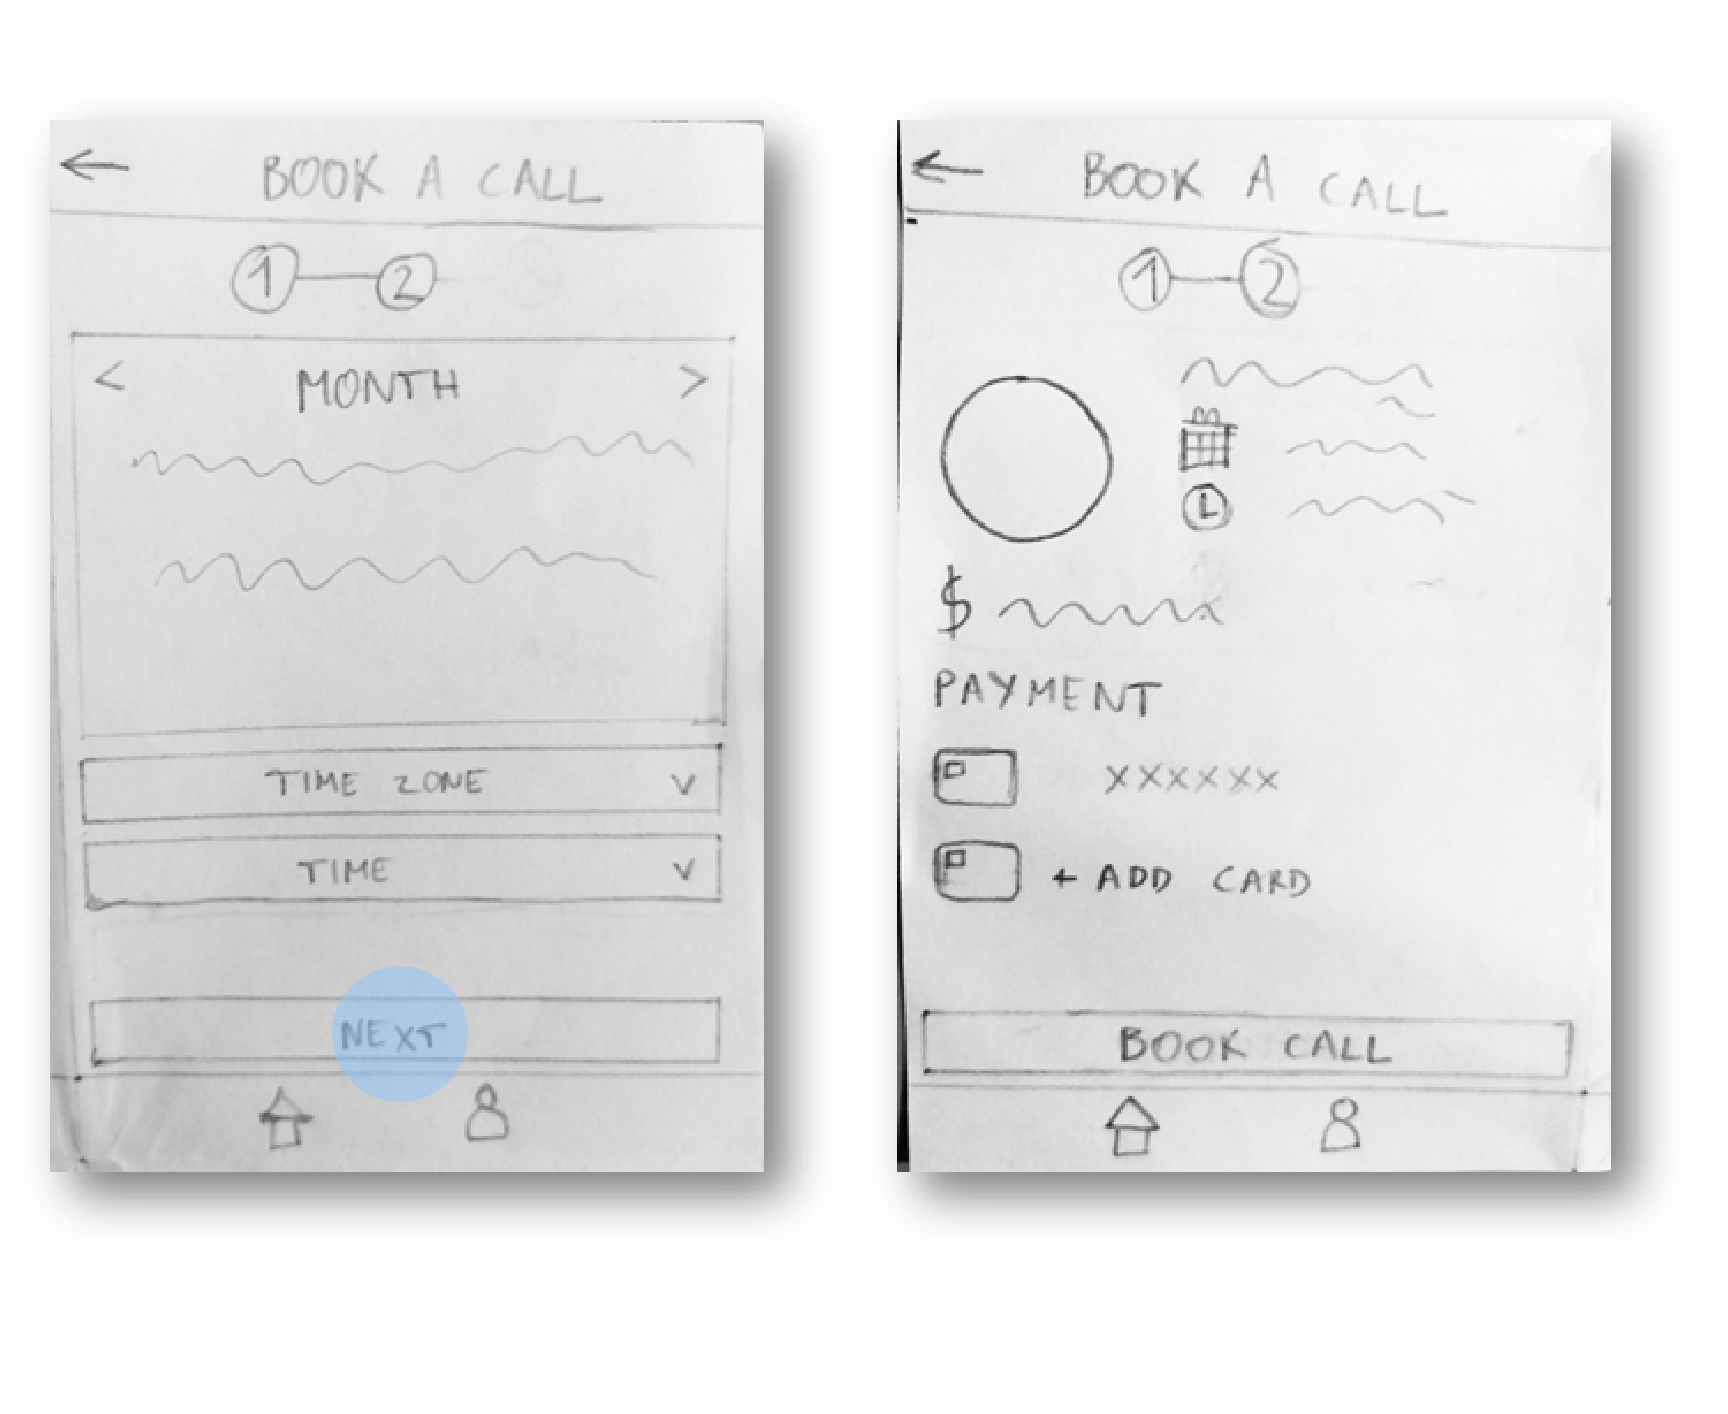 ← BOOK A CALL
1 2
< MONTH >
TIME ZONE V
TIME V
NEXT
← BOOK A CALL
1 2
$
PAYMENT
XXXXXX
+ ADD CARD
BOOK CALL